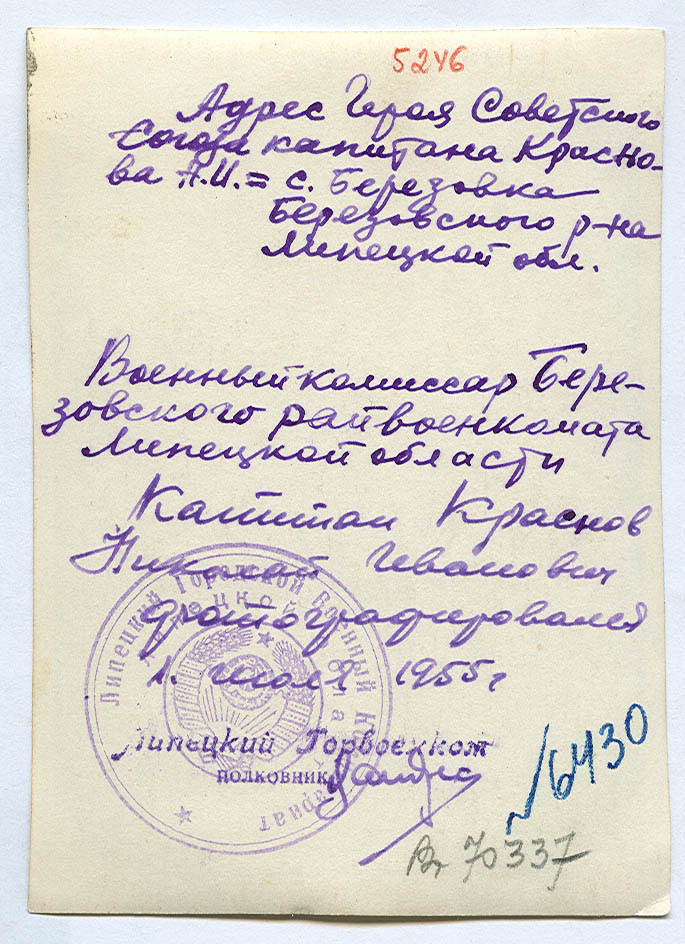 5246
Адрес Героя Советского
Союза капитана Красно-
ва Н.И. = с. Березовка
Березовского р-на
Липецкой обл.
Военный комиссар Бере-
зовского райвоенкомата
Липецкой области
Капитан Краснов
Николай Иванович
фотографировался
1. июля 1955 г
Липецкий Городской Военный Комиссариат
Липецкой области
Липецкий Горвоенком
полковник
№6430
70337